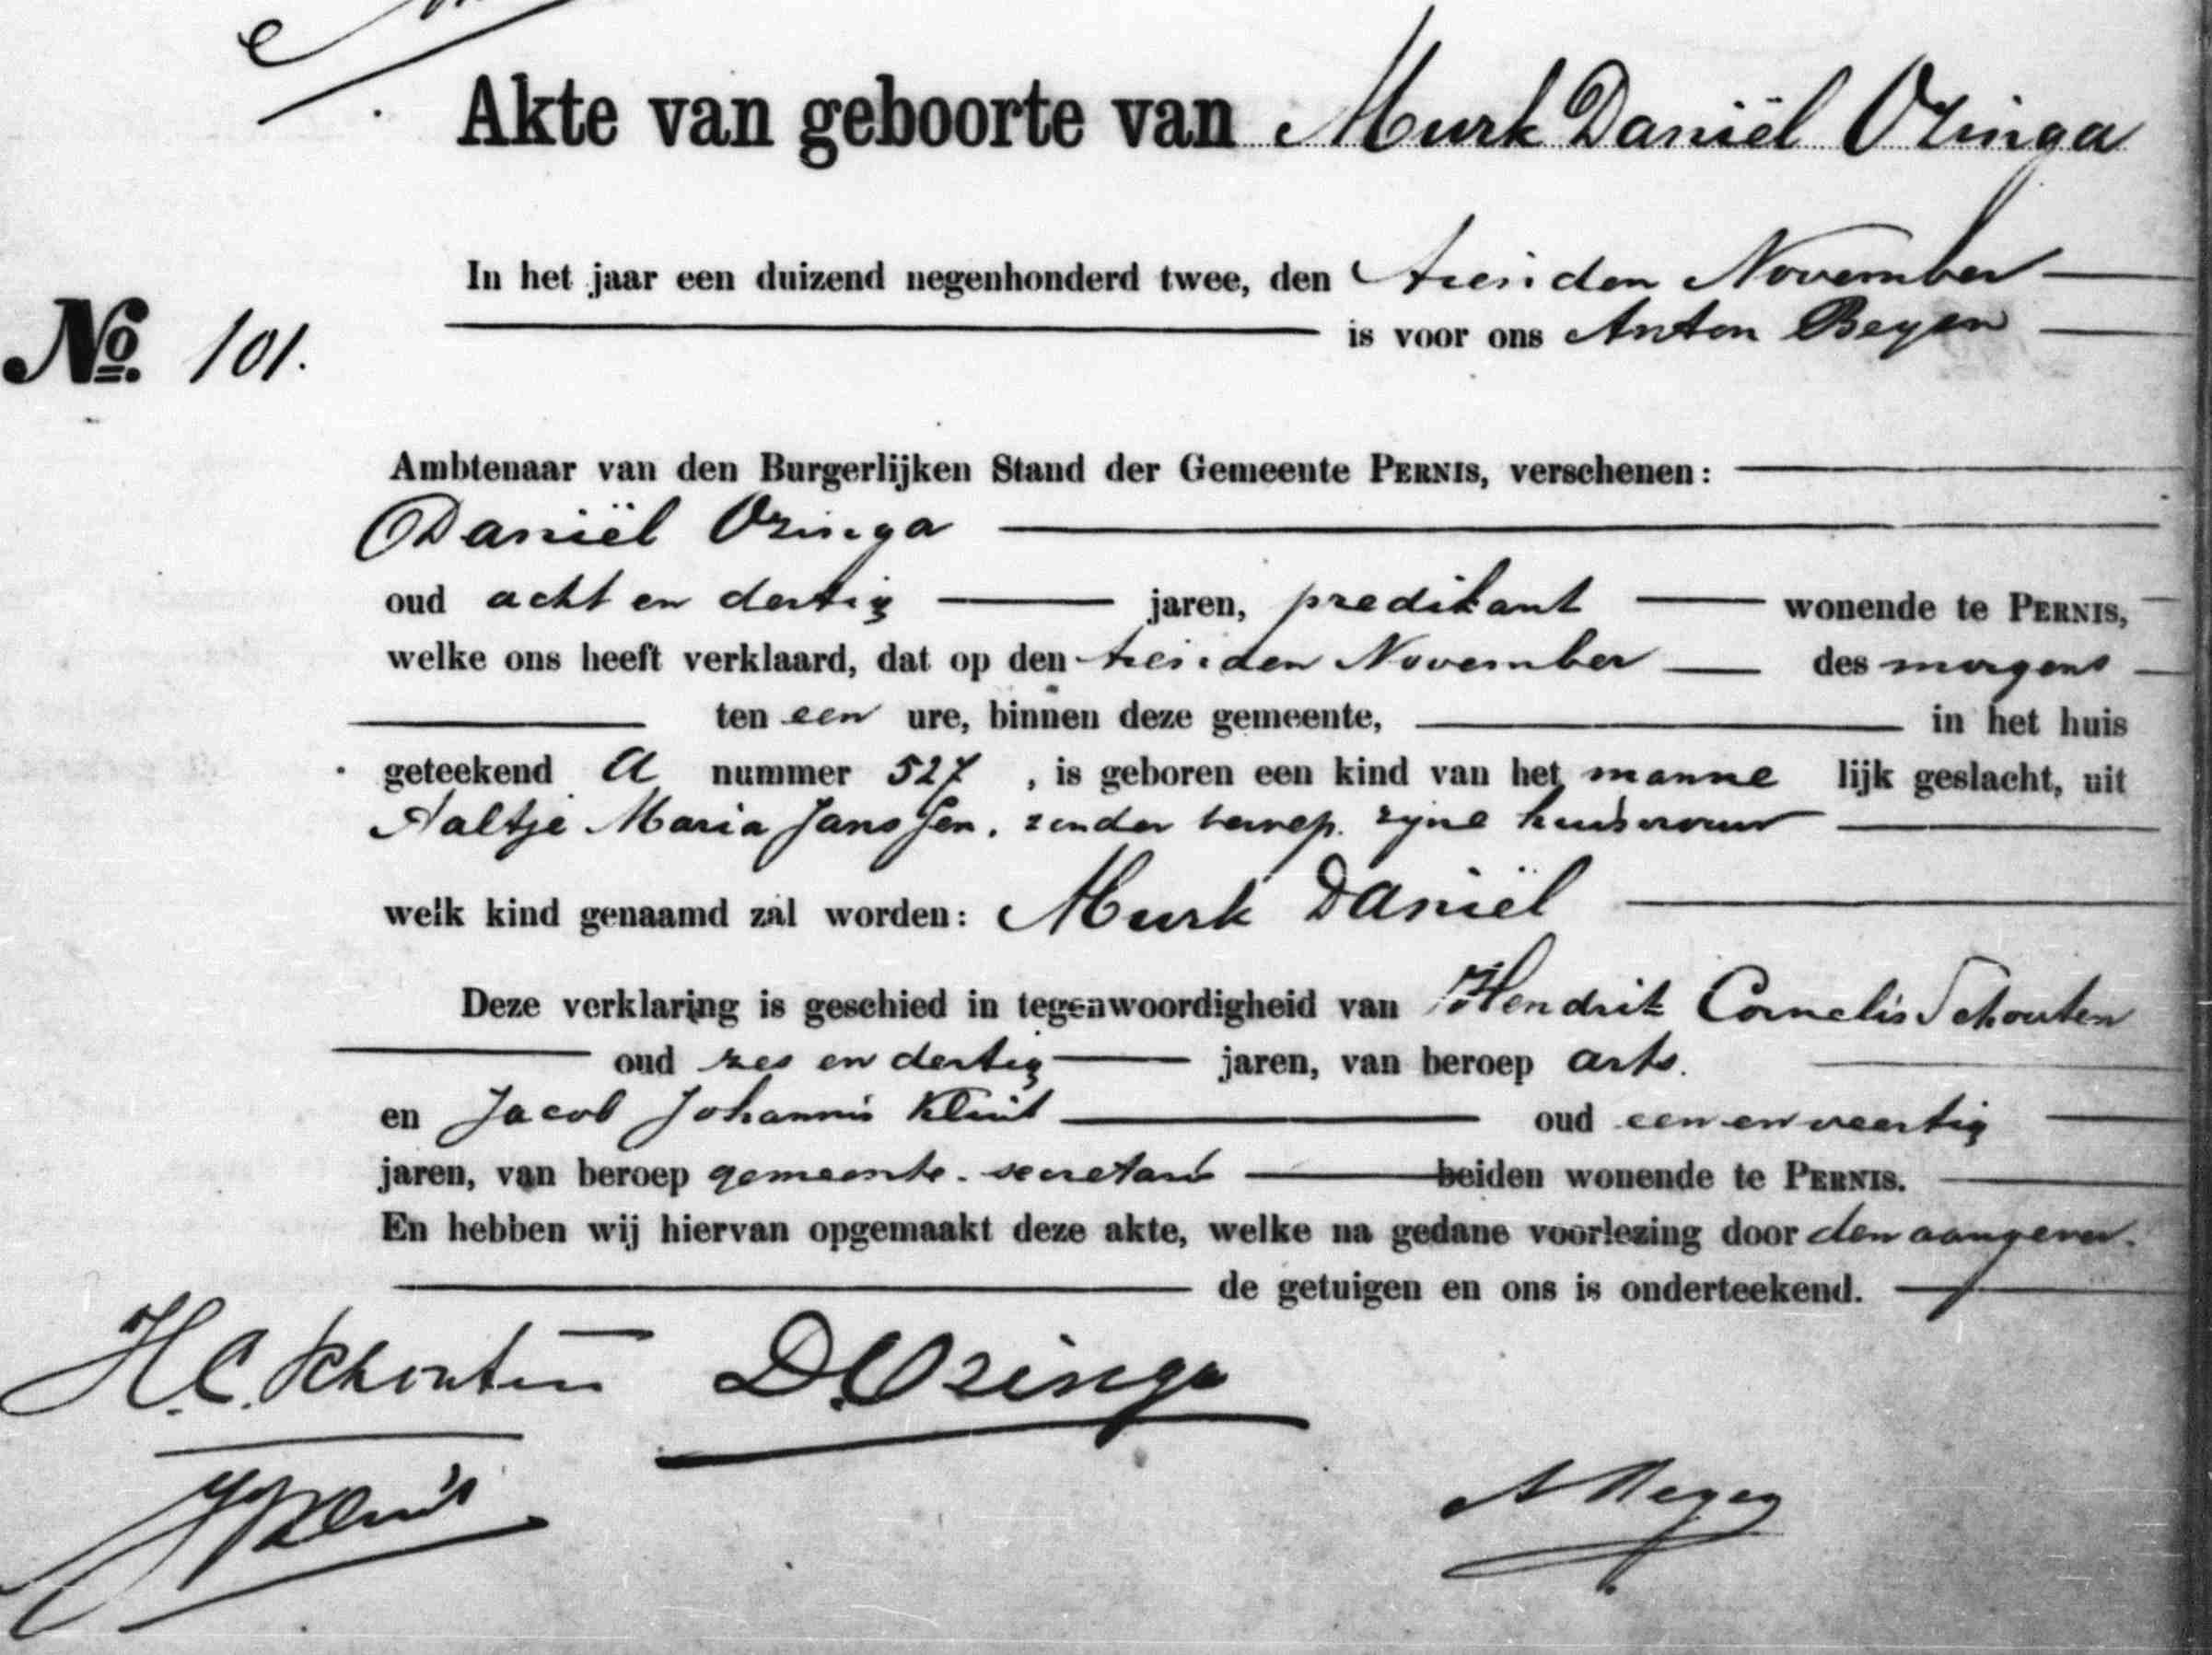 Akte van geboorte van Murk Daniël Ozinga
In het jaar een duizend negenhonderd twee, den tienden November
is voor ons Anton Beyen
No. 101.
Ambtenaar van den Burgerlijken Stand der Gemeente PERNIS, verschenen:
Daniël Ozinga
oud acht en dertig jaren, predikant wonende te PERNIS,
welke ons heeft verklaard, dat op den tienden November des morgens
ten een ure, binnen deze gemeente, in het huis
geteekend A nummer 527, is geboren een kind van het mannelijk geslacht, uit
Aaltje Maria Janssen, zonder beroep, zyne huisvrouw
welk kind genaamd zal worden: Murk Daniël
Deze verklaring is geschied in tegenwoordigheid van Hendrik Cornelis Schouten
oud zes en dertig jaren, van beroep arts.
en Jacob Johannis Kluit oud een en veertig
jaren, van beroep gemeente-secretaris beiden wonende te PERNIS.
En hebben wij hiervan opgemaakt deze akte, welke na gedane voorlezing door den aangever.
de getuigen en ons is onderteekend.
H.C. Schouten D. Ozinga
JJKluit